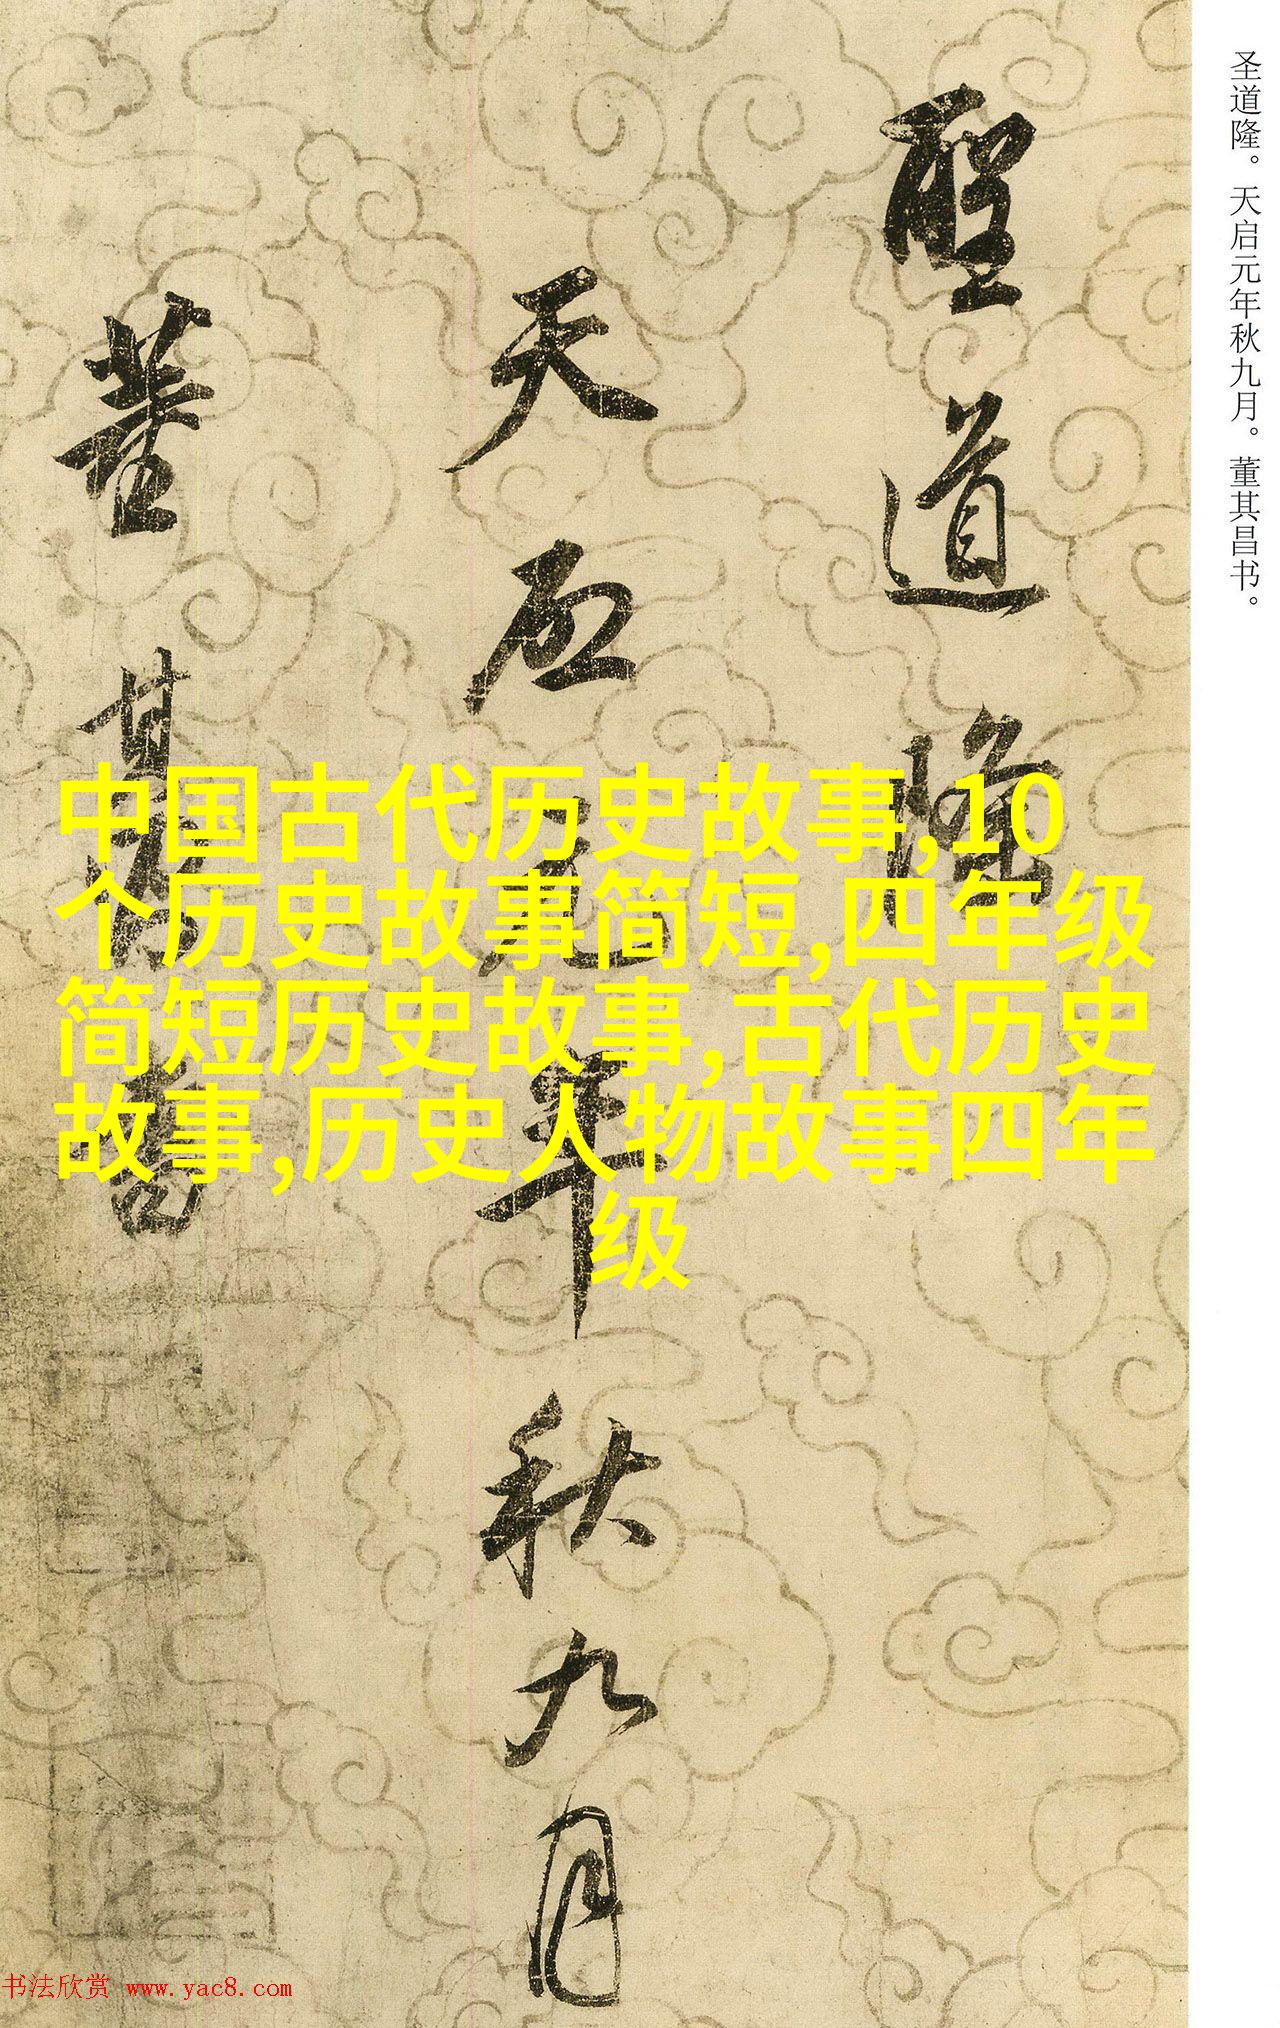 圣道隆。天启元年秋九月。董其昌书。
聖道隆
天启元年秋九月
董其昌書
中国古代历史故事,10
个历史故事简短,四年级
简短历史故事,古代历史
故事,历史人物故事四年
级
书法欣赏 www.yac8.com